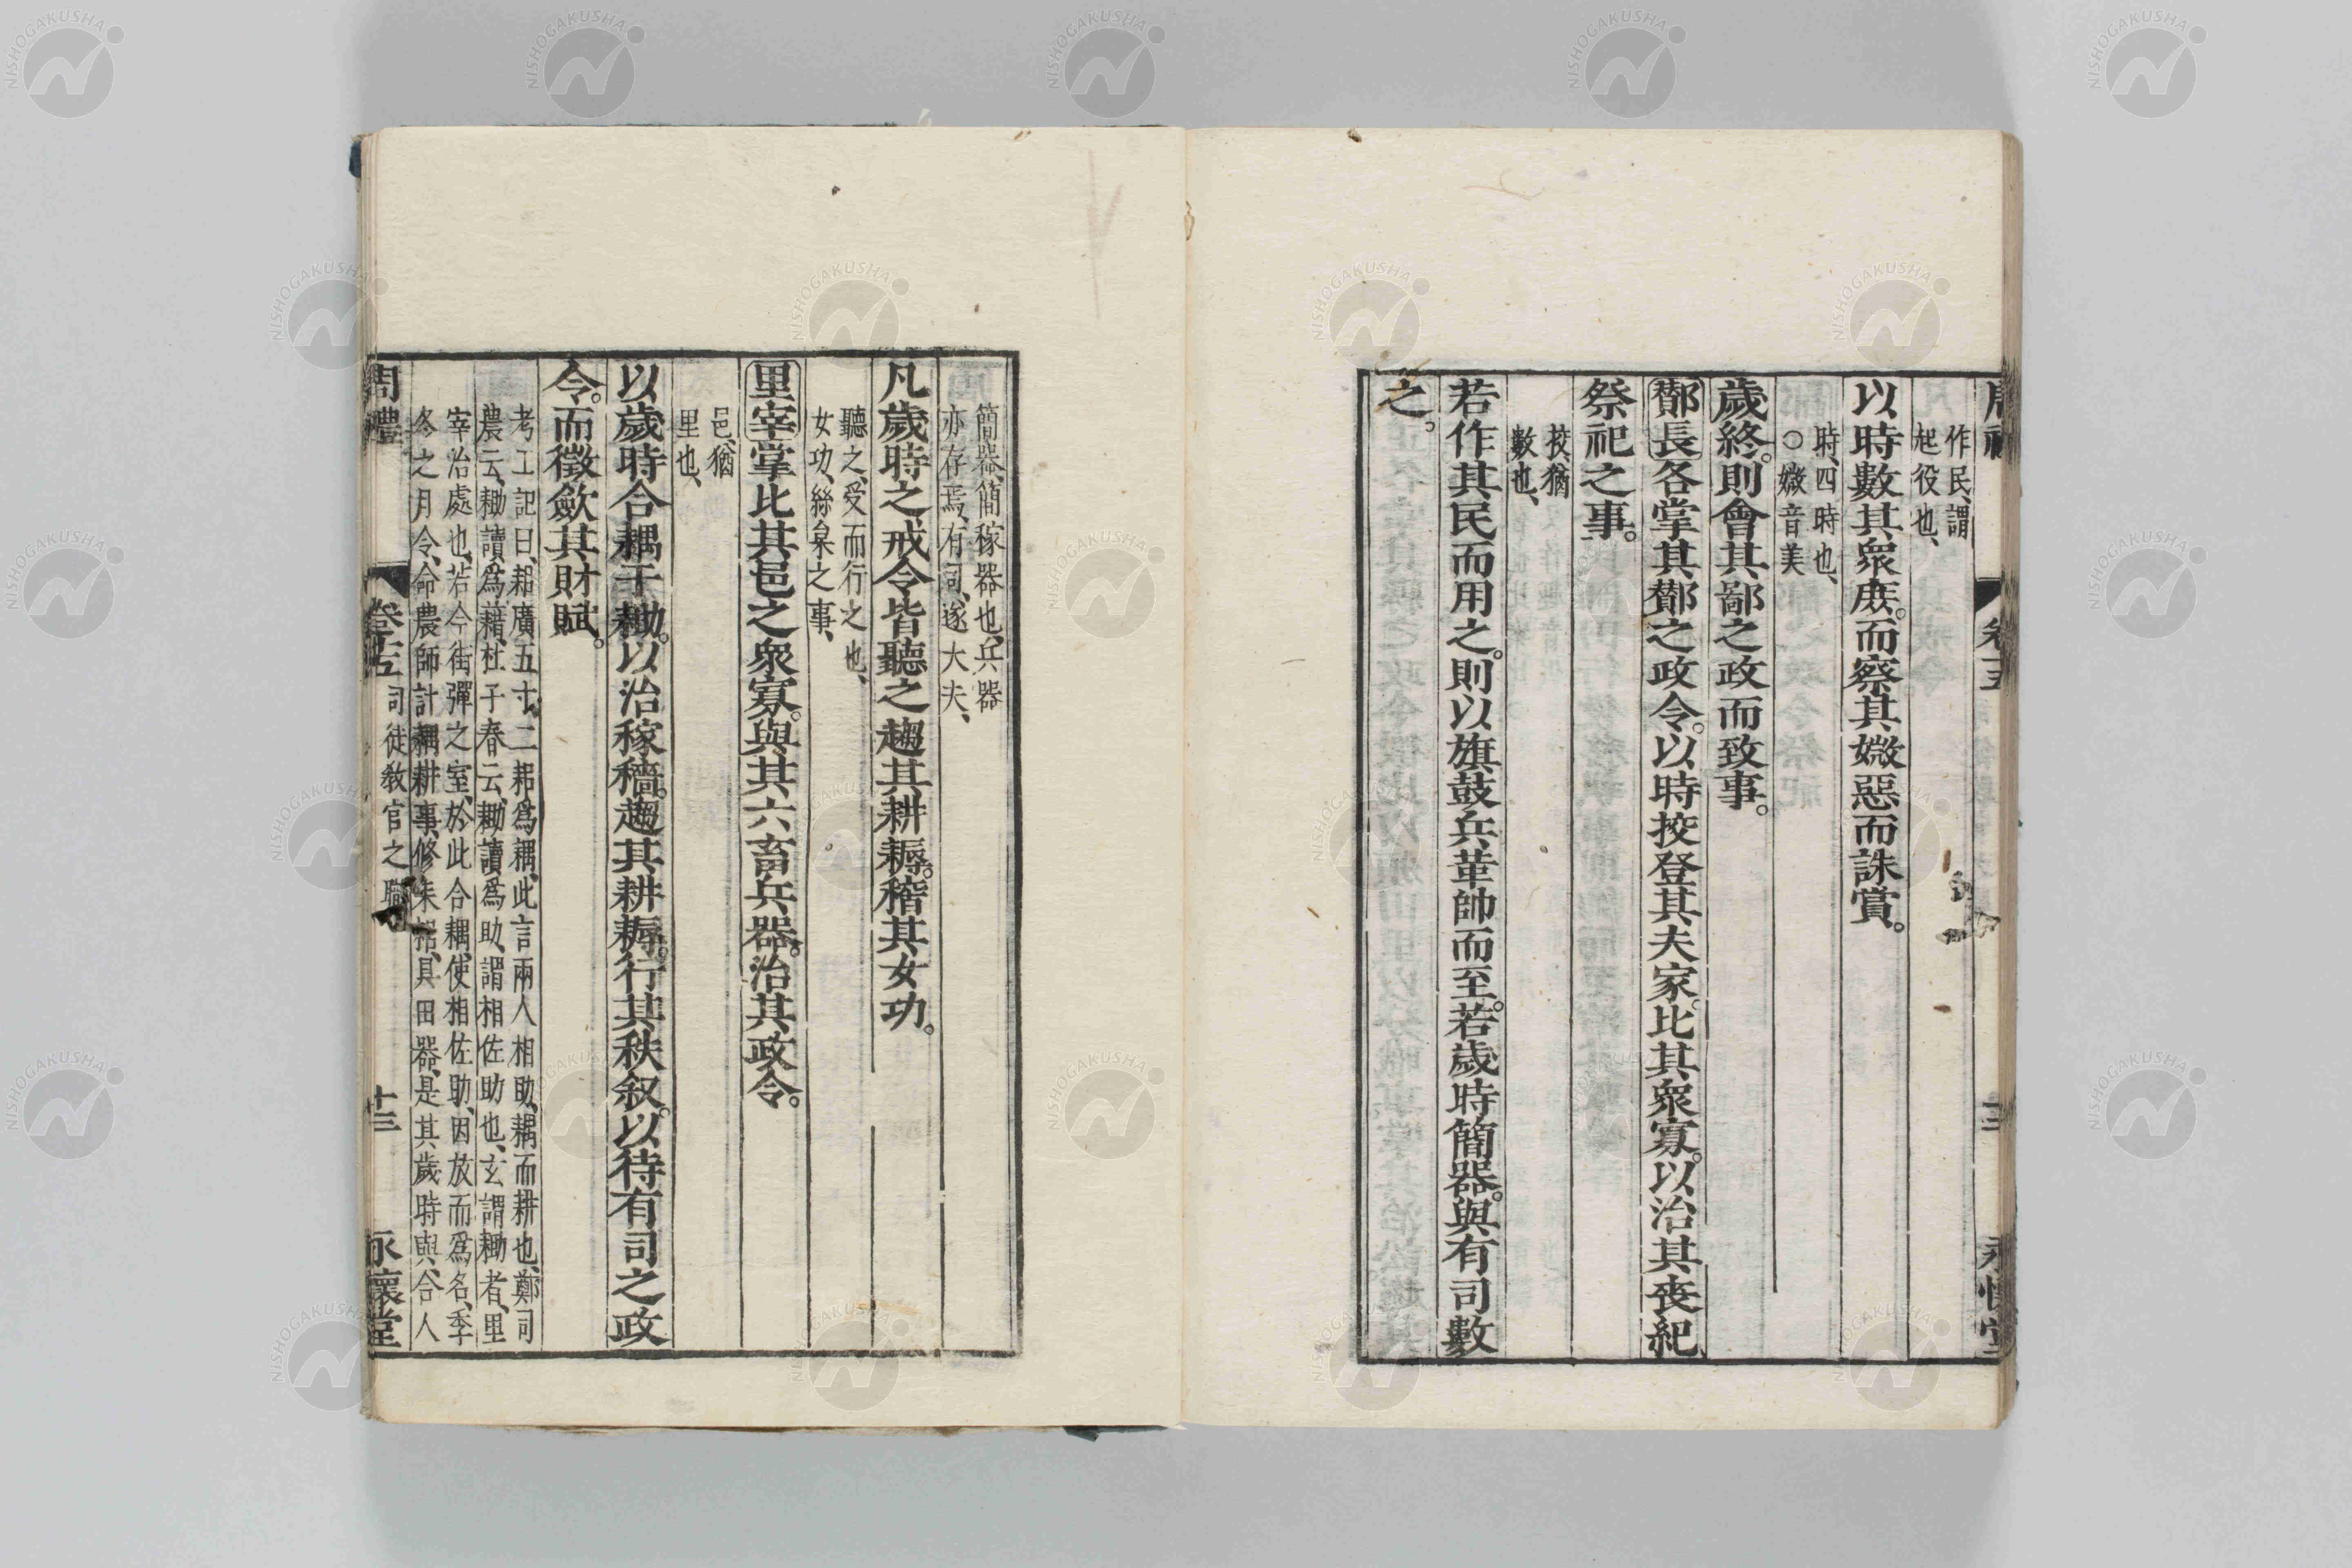 作民、謂
起役也、
以時數其衆庶。而察其媺惡而誅賞。
時、四時也、
○媺音美
歲終。則會其鄙之政而致事。
酇長各掌其酇之政令。以時挍登其夫家。比其衆寡。以治其喪紀
祭祀之事。
挍、猶
數也、
若作其民而用之。則以旗鼓兵革帥而至。若歲時簡器。與有司數
之。
簡器、簡稼器也、兵器
亦存焉、有司、遂大夫、
凡歲時之戒令皆聽之趨其耕耨。稽其女功。
聽之、受而行之也、
女功、絲枲之事、
里宰掌比其邑之衆寡。與其六畜兵器。治其政令。
邑、猶
里也、
以歲時合耦于耡。以治稼穡。趨其耕耨。行其秩叙。以待有司之政
令。而徵斂其財賦。
考工記曰、耜廣五寸、二耜爲耦、此言兩人相助、耦而耕也、鄭司
農云、耡讀爲藉、杜子春云、耡讀爲助、謂相佐助也、玄謂耡者、里
宰治處也、若今街彈之室、於此合耦、使相佐助、因放而爲名、季
冬之月令、命農師計耦耕事、修耒耜、具田器、是其歲時與、合人
周禮 卷十五 司徒教官之職 十三 永懷堂